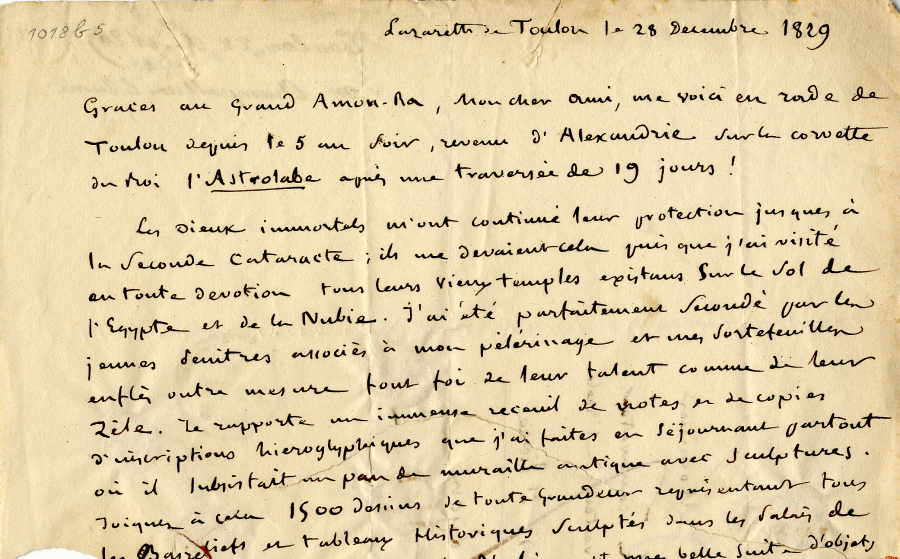 1018 b 5
Lazareth de Toulon le 28 Decembre 1829
Graces au Grand Amon-Ra, Mon cher ami, me voici en rade de
Toulon depuis le 5 au soir, revenu d'Alexandrie sur la corvette
du Roi l'Astrolabe après une traversée de 19 jours !
Les Dieux immortels m'ont continué leur protection jusques à
la Seconde Cataracte ; ils me devaient cela puis que j'ai visité
en toute devotion tous leurs vieux temples existans sur le sol de
l'Egypte et de la Nubie. J'ai été parfaitement secondé par les
jeunes peintres associés à mon pélérinage et mes portefeuilles
enflés outre mesure font foi de leur talent comme de leur
Zèle. Je rapporte un immense recueil de notes et de copies
d'inscriptions hieroglyphiques que j'ai faites en séjournant partout
où il subsistait un pan de muraille antique avec sculptures.
Joignez à cela 1500 dessins de toute Grandeur représentant tous
les Basreliefs et tableaux Historiques sculptés dans les Palais de
et une belle suite d'objets